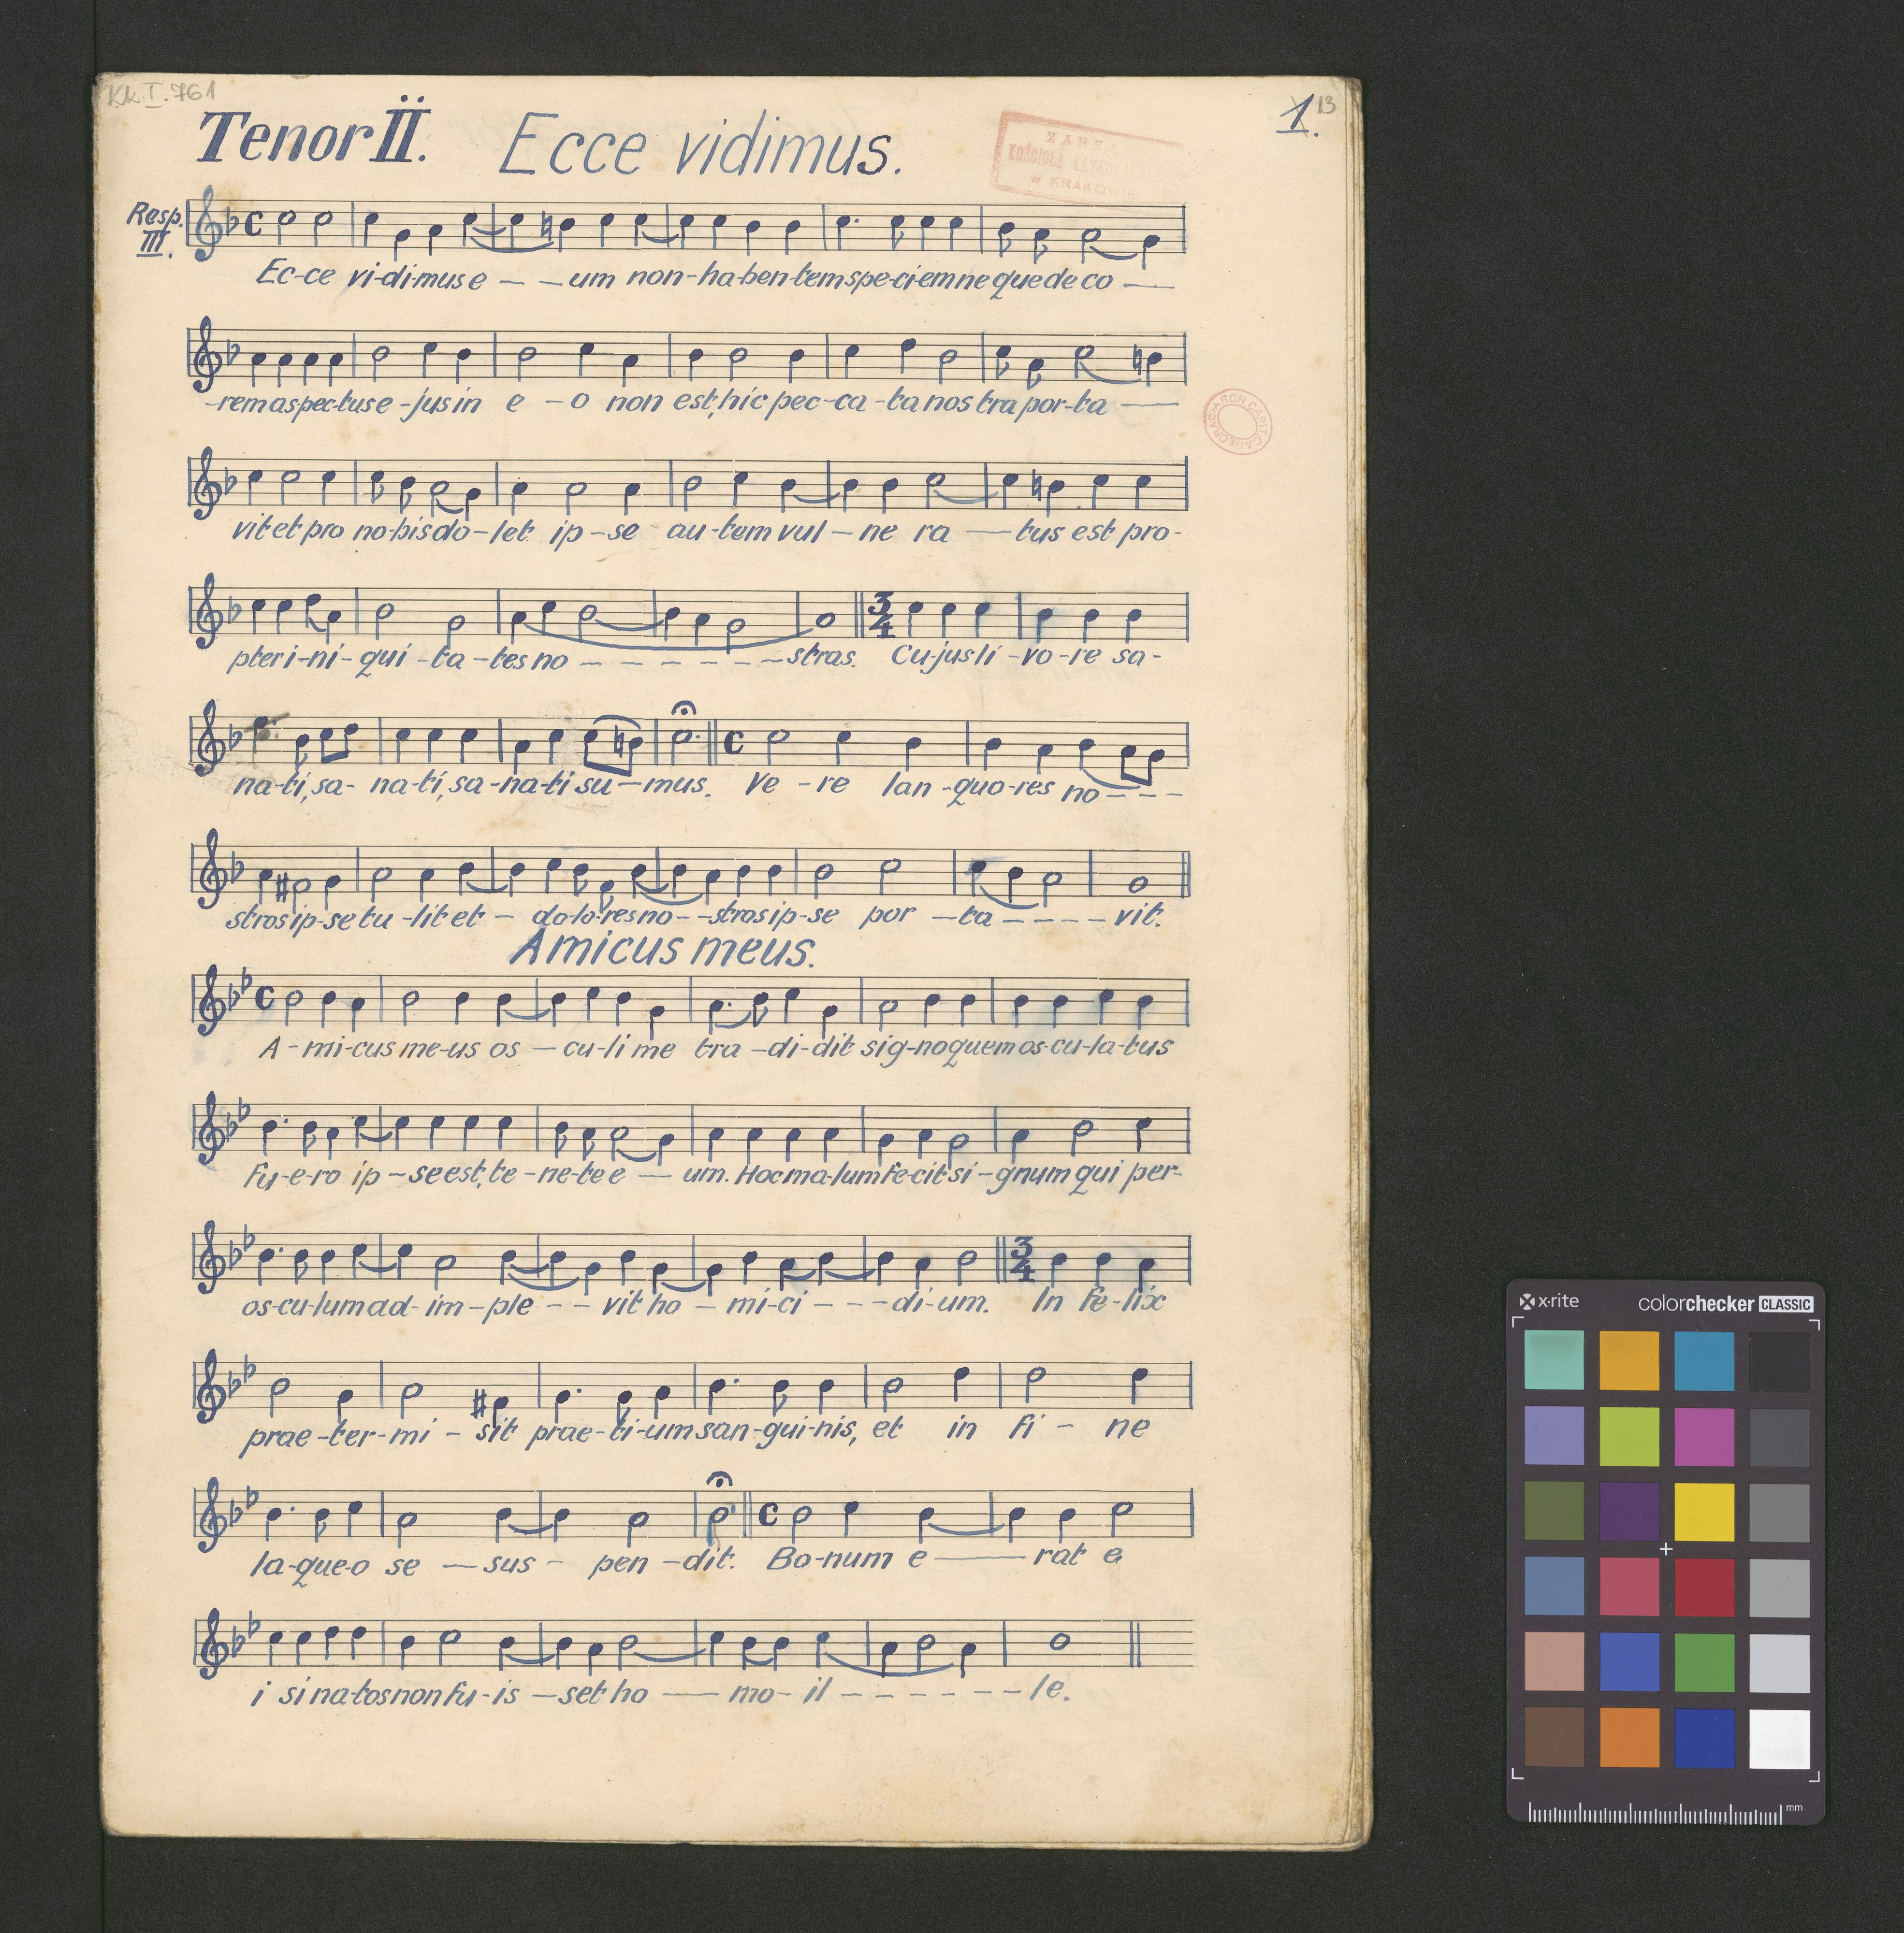 KK.I.761
1. 13
Tenor II. Ecce vidimus.
ZARZĄ
KOŚCIOŁA KATEDRALN
w KRAKOWIE
Resp. III.
Ec-ce vi-di-mus e - - um non-ha-ben-tem spe-ci-em ne que de co —
-rem as-pec-tus e-jus in e-o non est, hic pec-ca-ta nos tra por-ta —
ARCH. CAPIT. CATH. CRAC.
vit et pro no-bis do-let ip-se au-tem vul-ne ra — tus est pro-
pter i-ni-qui-ta-tes no - - - - - - stras. Cu-jus li-vo-re sa-
na-ti, sa-na-ti, sa-na-ti su-mus. Ve-re lan-quo-res no - - -
stros ip-se tu-lit et - do-lo-res no - - stros ip-se por-ta - - - - vit.
Amicus meus.
A-mi-cus me-us os-cu-li me tra-di-dit sig-no quem os-cu-la-tus
Fu-e-ro ip-se est, te-ne-te e — um. Hoc ma-lum fe-cit si-gnum qui per-
os-cu-lum ad-im-ple - - vit ho-mi-ci - - - di-um. In fe-lix
prae-ter-mi-sit prae-ti-um san-gui-nis, et in fi-ne
la-que-o se — sus-pen-dit. Bo-num e — rat e
i si na-tos non fu-is-set ho — mo-il - - - - - - le.
x·rite colorchecker CLASSIC
mm